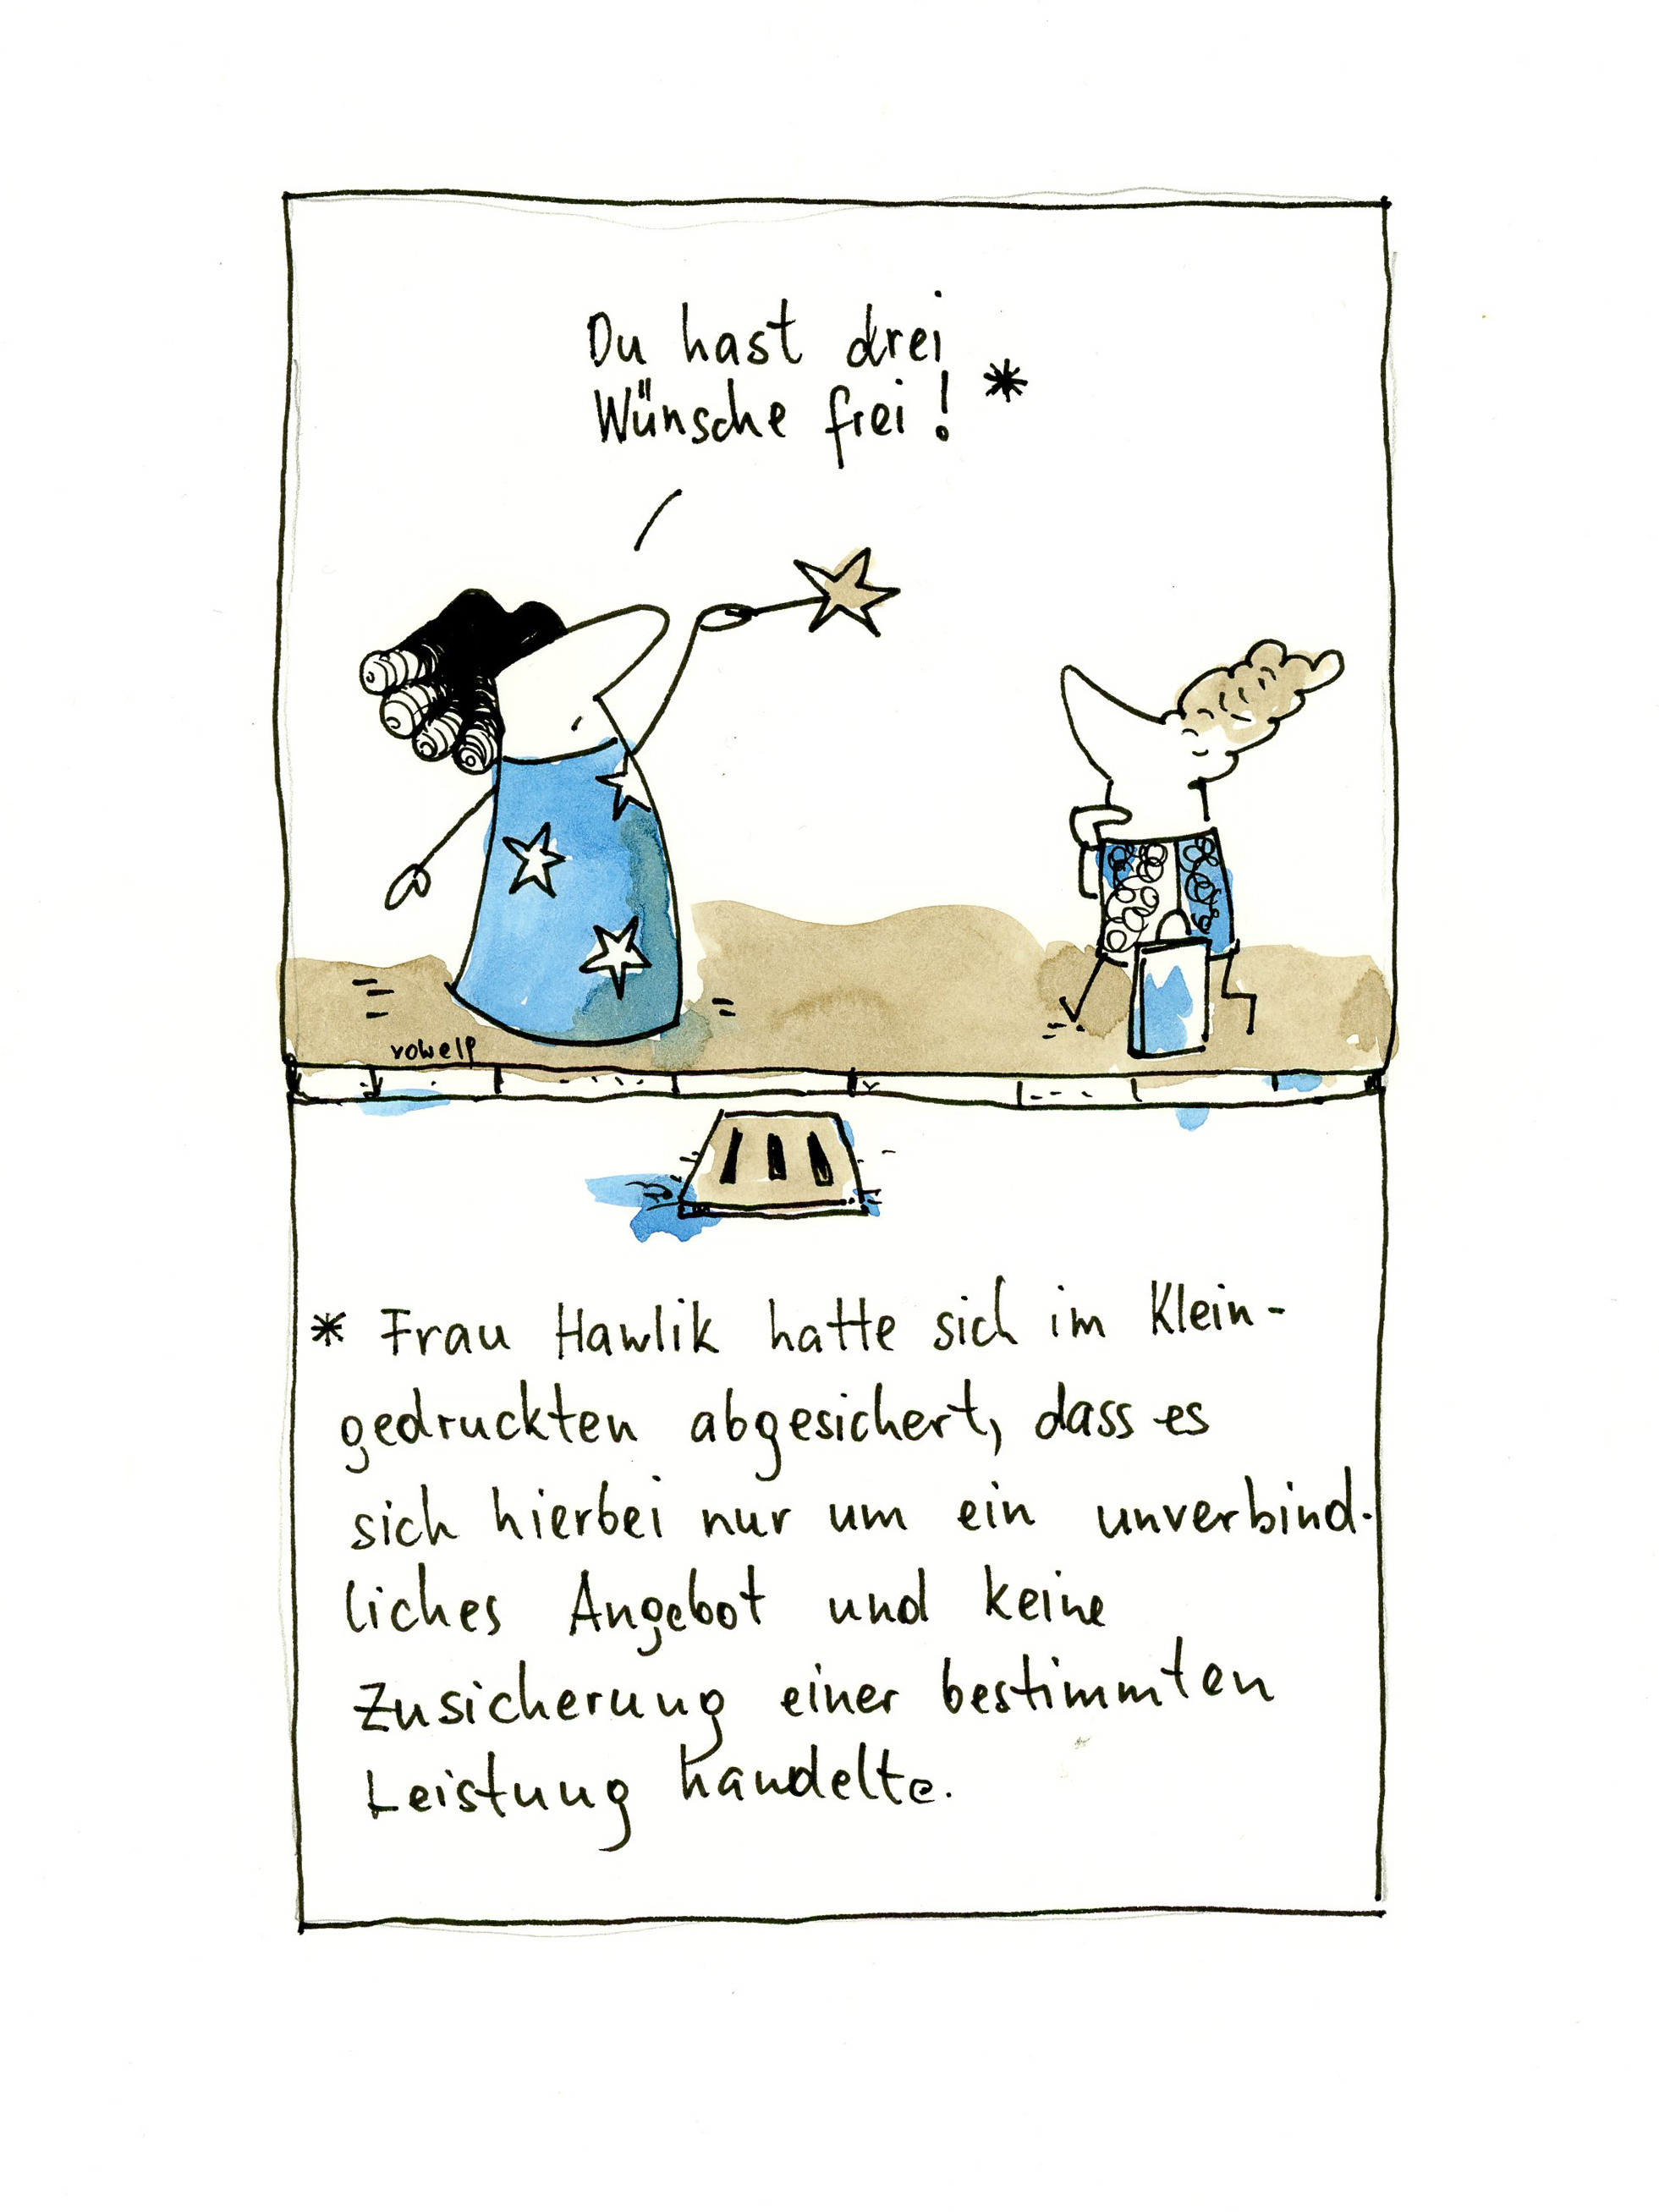 Du hast drei
Wünsche frei! *
rowelp
* Frau Hawlik hatte sich im Klein-
gedruckten abgesichert, dass es
sich hierbei nur um ein unverbind-
liches Angebot und keine
Zusicherung einer bestimmten
Leistung handelte.